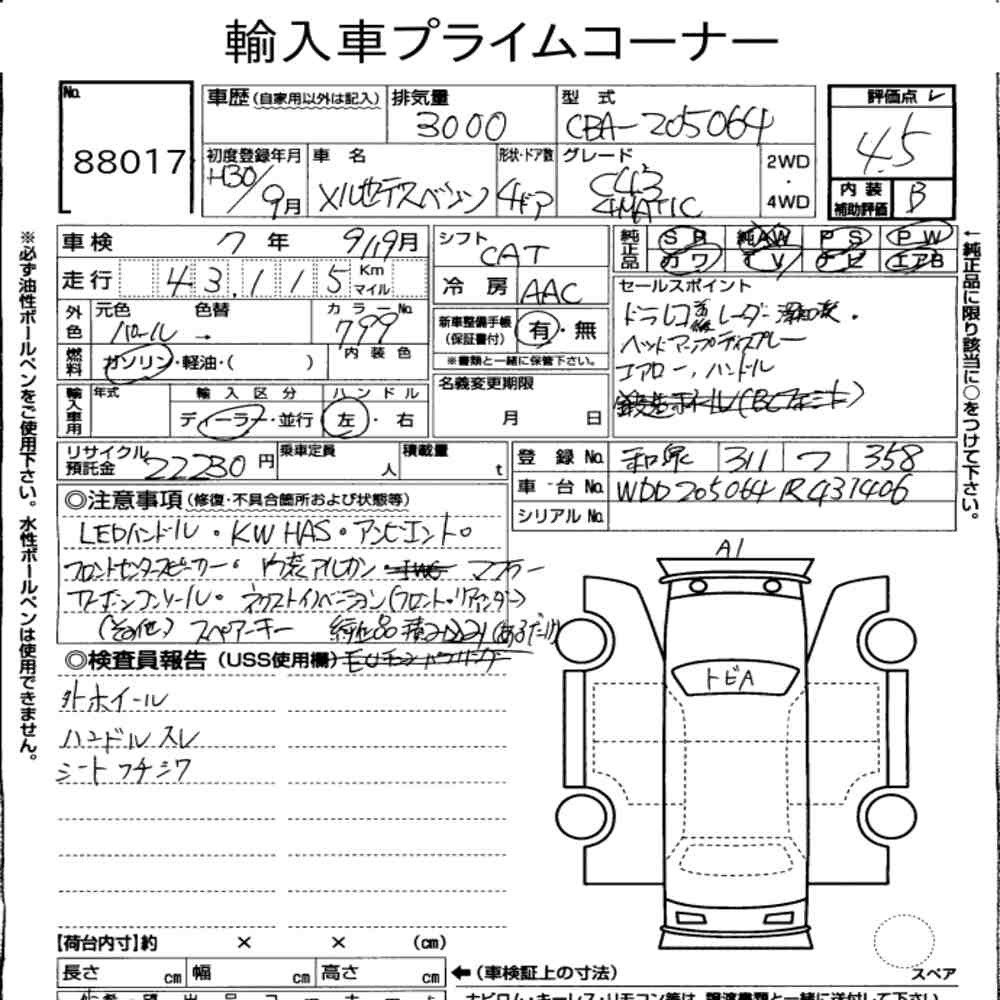 輸入車プライムコーナー
No. 88017
車歴(自家用以外は記入) 排気量 3000 型式 CBA-205064 評価点 4.5
初度登録年月 H30/9月 車名 メルセデスベンツ 形状・ドア数 4ドア グレード C43 4MATIC 2WD・4WD 内装補助評価 B
車検 7年 9/19月 シフト CAT 純正品 SR 純AW PS PW
カワ TV ナビ エアB
走行 43,115 Km マイル 冷房 AAC セールスポイント
外色 元色 パール 色替 → カラーNo. 799 新車整備手帳(保証書付) 有・無
※書類と一緒に保管下さい。
ドラレコ レーダー
ヘッドアップディスプレー
エアロー,ハンドル
燃料 ガソリン・軽油・( ) 内装色
輸入車用 年式 輸入区分 ディーラー・並行 ハンドル 左・右 名義変更期限 月 日
リサイクル預託金 22230円 乗車定員 人 積載量 t 登録No. 和泉 311 フ 358
車台No. WDD205064 1R431406
シリアルNo.
◎注意事項(修復・不具合箇所および状態等)
LEDハンドル・KW HAS・アンビエント。
フロントセンタースピーカー・内装アルカン・ マフラー
カーボンコンソール・ネクストイノベーション(フロント・リアインダー)
(その他) スペアーキー 純正品積み込み(あるだけ)
◎検査員報告(USS使用欄)
外ホイール
ハンドルスレ
シートフチシワ
A1
トビA
【荷台内寸】約 × × (cm)
長さ cm 幅 cm 高さ cm ←(車検証上の寸法)
スペア
※必ず油性ボールペンをご使用下さい。水性ボールペンは使用できません。
←純正品に限り該当に○をつけて下さい。